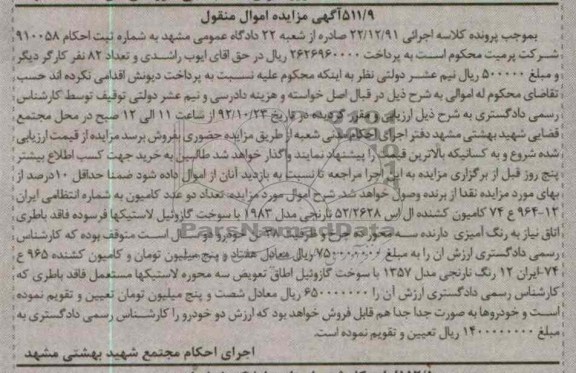 ۵۱۱/۹آگهی مزایده اموال منقول
بموجب پرونده کلاسه اجرائی ۲۲/۱۲/۹۱ صادره از شعبه ۲۲ دادگاه عمومی مشهد به شماره ثبت احکام ۹۱۰۰۵۸
شرکت پرمیت محکوم است به پرداخت ۲۶۲۶۹۶۰۰۰۰ ریال در حق اقای ایوب راشدی و تعداد ۸۲ نفر کارگر دیگر
و مبلغ ۵۰۰۰۰۰ ریال نیم عشر دولتی نظر به اینکه محکوم علیه نسبت به پرداخت دیونش اقدامی نکرده اند حسب
تقاضای محکوم له اموالی به شرح ذیل در قبال اصل خواسته و هزینه دادرسی و نیم عشر دولتی توقیف توسط کارشناس
رسمی دادگستری به شرح ذیل ارزیابی و مقرر گردیده در تاریخ ۹۲/۱۰/۲۳ از ساعت ۱۱ الی ۱۲ صبح در محل مجتمع
قضایی شهید بهشتی مشهد دفتر اجرای احکام مدنی شعبه از طریق مزایده حضوری بفروش برسد مزایده از قیمت ارزیابی
شده شروع و به کسانیکه بالاترین قیمت را پیشنهاد نمایند واگذار خواهد شد طالبین به خرید جهت کسب اطلاع بیشتر
پنج روز قبل از برگزاری مزایده به این اجرا مراجعه تا نسبت به بازدید آنان از اموال داده شود ضمنا حداقل ۱۰درصد از
بهای مورد مزایده نقدا از برنده وصول خواهد شد. شرح اموال مورد مزایده: تعداد دو عدد کامیون به شماره انتظامی ایران
۱۲-۹۶۴ ع ۷۴ کامیون کشنده ال اس ۵۲/۲۶۲۸ نارنجی مدل ۱۹۸۳ با سوخت گازوئیل لاستیکها فرسوده فاقد باطری
اتاق نیاز به رنگ آمیزی دارنده سه محوره خودرو دو سال است متوقف بوده که کارشناس
رسمی دادگستری ارزش آن را به مبلغ ۷۵۰۰۰۰۰۰۰ ریال معادل هفتاد و پنج میلیون تومان و کامیون کشنده ۹۶۵ ع
۷۴-ایران ۱۲ رنگ نارنجی مدل ۱۳۵۷ با سوخت گازوئیل اطاق تعویض سه محوره لاستیکها مستعمل فاقد باطری که
کارشناس رسمی دادگستری ارزش آن را ۶۵۰۰۰۰۰۰۰ ریال معادل شصت و پنج میلیون تومان تعیین و تقویم نموده
است و خودروها به صورت جدا جدا هم قابل فروش خواهد بود که ارزش دو خودرو را کارشناس رسمی دادگستری به
مبلغ ۱۴۰۰۰۰۰۰۰۰ ریال تعیین و تقویم نموده است.
اجرای احکام مجتمع شهید بهشتی مشهد
ParsNamadData